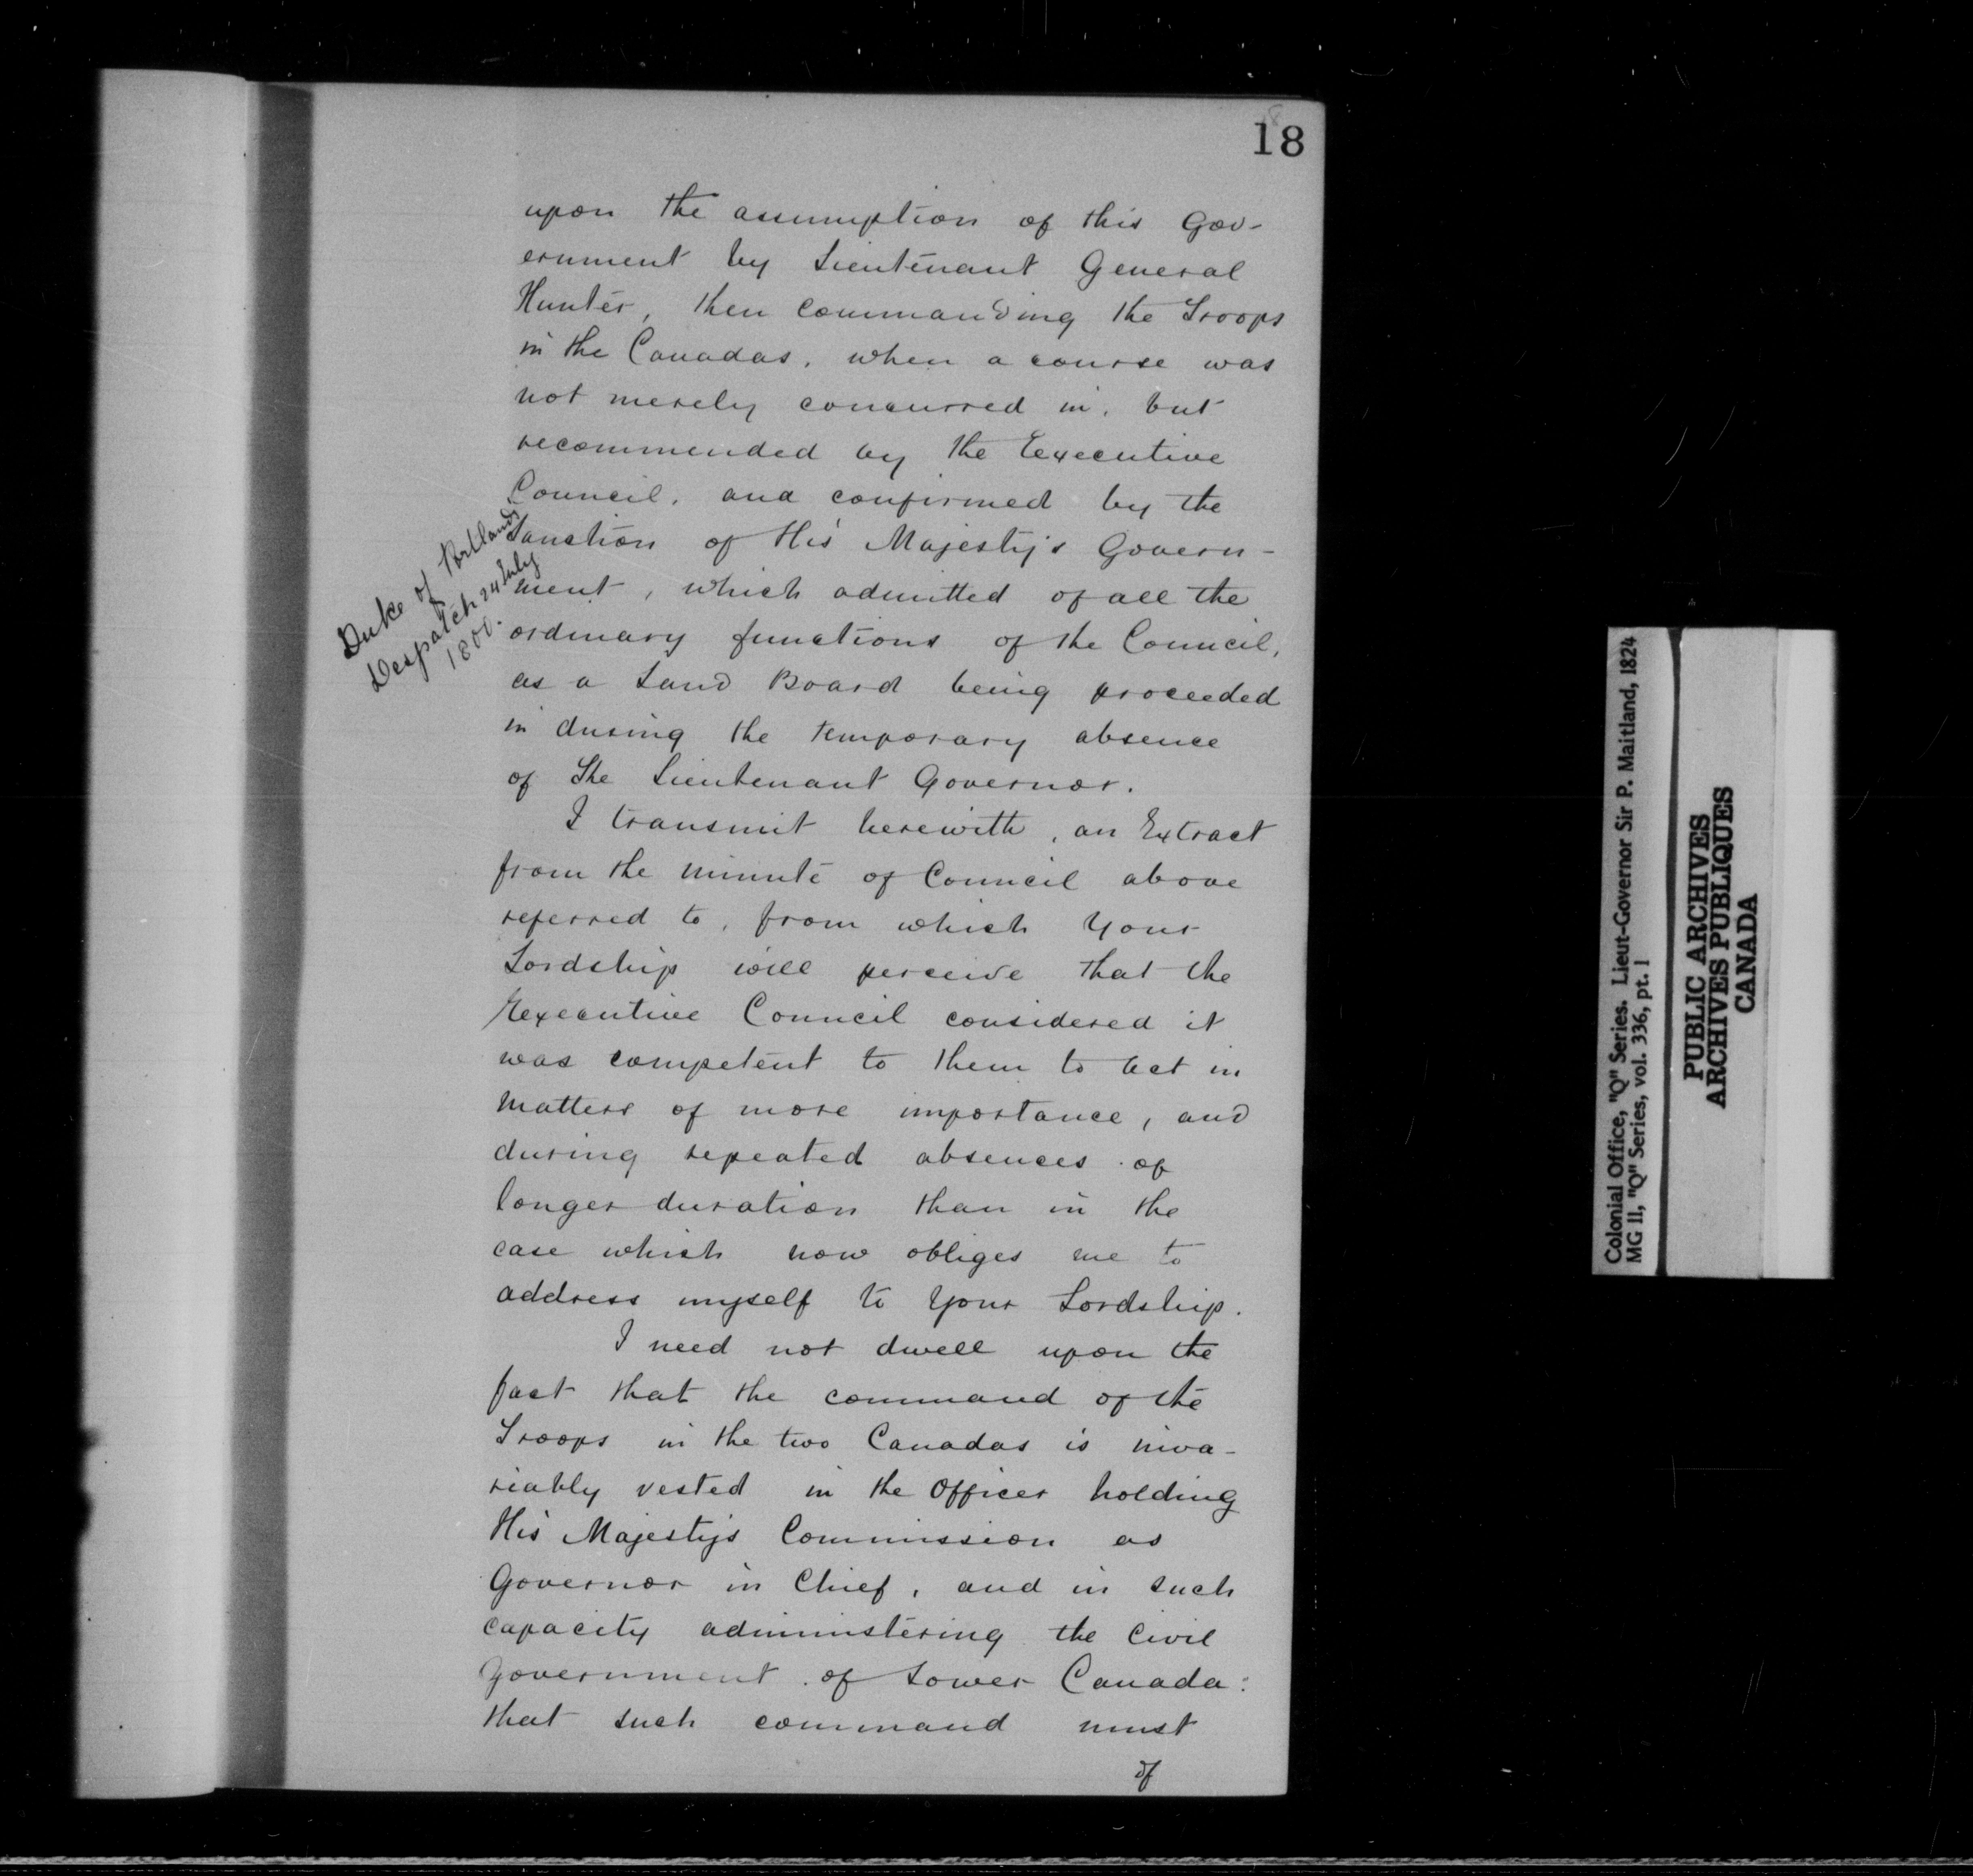 18
upon the assumption of this Gov-
ernment by Lieutenant General
Hunter, then commanding the Troops
in the Canadas, when a course was
not merely concurred in, but
recommended by the Executive
Council, and confirmed by the
Sanction of His Majesty's Govern-
ment, which admitted of all the
ordinary functions of the Council,
as a Land Board being proceeded
in during the temporary absence
of The Lieutenant Governor.
Duke of Portlands
Despatch 24 July
1800.
I transmit herewith, an Extract
from the minute of Council above
referred to, from which Your
Lordship will perceive that the
Executive Council considered it
was competent to them to act in
matters of more importance, and
during repeated absences of
longer duration than in the
case which now obliges me to
address myself to Your Lordship.
I need not dwell upon the
fact that the command of the
Troops in the two Canadas is inva-
riably vested in the Officer holding
His Majesty's Commission as
Governor in Chief, and in such
capacity administering the Civil
Government of Lower Canada:
that such command must
of
Colonial Office, "Q" Series. Lieut-Governor Sir P. Maitland, 1824
MG 11, "Q" Series, vol. 336, pt. 1
PUBLIC ARCHIVES
ARCHIVES PUBLIQUES
CANADA